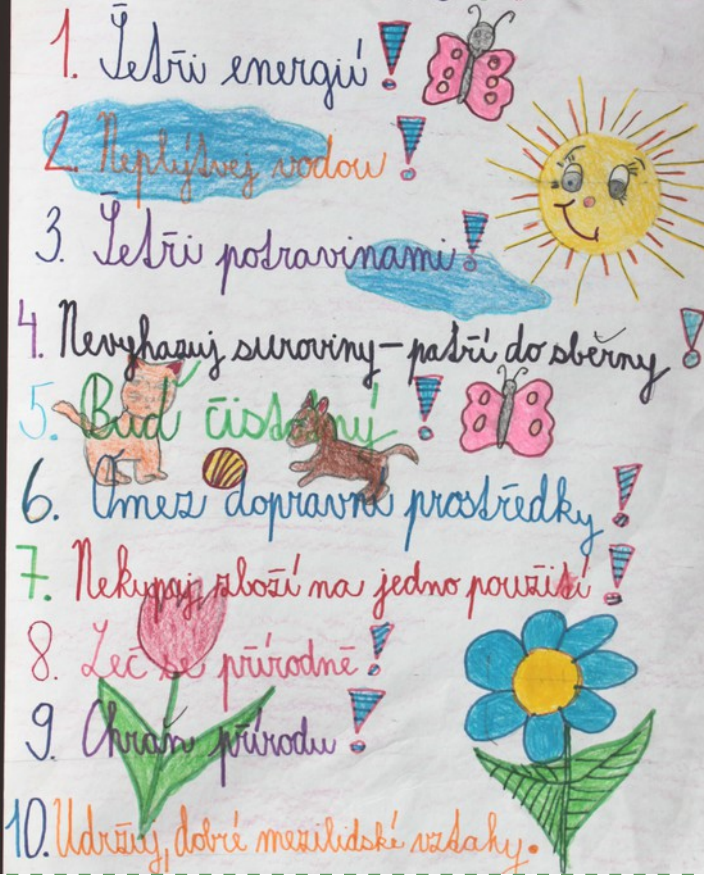 1. Šetři energií!
2. Neplýtvej vodou!
3. Šetři potravinami!
4. Nevyhazuj suroviny - patří do sběrny!
5. Buď čistotný!
6. Omez dopravní prostředky!
7. Nekupuj zboží na jedno použití!
8. Leč se přírodně!
9. Chraň přírodu!
10. Udržuj, dobré mezilidské vztahy.